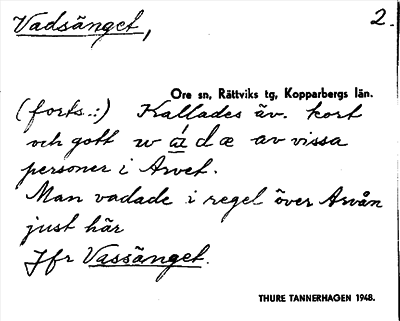 Vadsänget,
2.
Ore sn, Rättviks tg, Kopparbergs län.
(forts.:) Kallades äv. kort
och gott wádæ av vissa
personer i Arvet.
Man vadade i regel över Arvån
just här
Jfr Vassänget.
THURE TANNERHAGEN 1948.